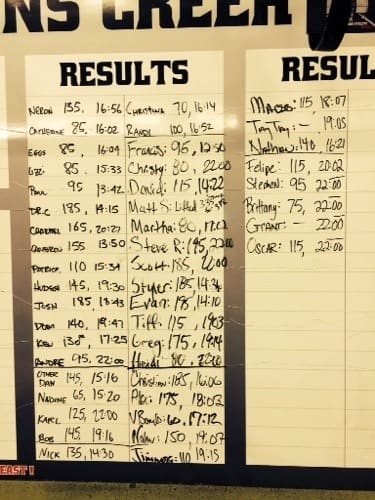 NS CREEK
RESULTS
NERON 135, 16:56
CATHERINE 85, 16:02
EGGS 85, 16:09
OZZI 85, 15:33
PAUL 95, 13:42
DR.C 185, 14:15
165, 20:27
CAMERON 155 13:50
PATRICK, 110 15:34
HUDSON 145, 19:30
JOSH 185, 18:43
DOM 140, 19:47
KEN 130, 17:25
ANDRE 95, 22:00
OTHER DAN 145, 15:16
NADINE 65, 15:20
KARL 125, 22:00
BOB 145, 19:16
NICK 135, 14:30
CHRISTINA 70, 16:14
RANDI 100, 16:52
Francis: 95, 12:50
Christy: 80, 22:00
David: 115, 14:22
Matt S: Lifted
Martha: 80, 17:02
Steve R: 195, 22:00
Scott: 185, 22:00
Styler: 185, 14:36
Evan: 185, 14:10
Tiff: 115, 19:03
Greg: 175, 19:14
Heidi: 80, 22:00
Christian: 185, 16:06
175, 18:02
60, 17:12
Nolan: 150, 19:07
110 19:15
RESUL
115, 18:07
Tay Tay: - 19:05
Nathan: 140, 16:21
Felipe: 115, 20:02
Stephen: 95, 22:00
Brittany: 75, 22:00
Grant: - 22:00
Oscar: 115, 22:00
EAST!